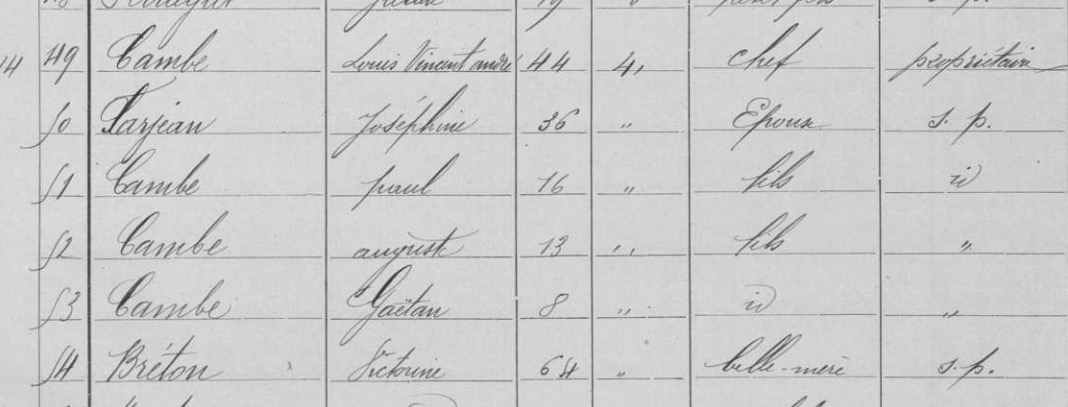 14 49 Cambe Louis Vincent andré 44 4, chef propriétaire
50 Tarjean Joséphine 36 " Epouse s. p.
51 Cambe paul 16 " fils id
52 Cambe august 13 " fils "
53 Cambe Gaëtan 8 " id "
54 Bréton Victorine 64 " belle-mère s. p.